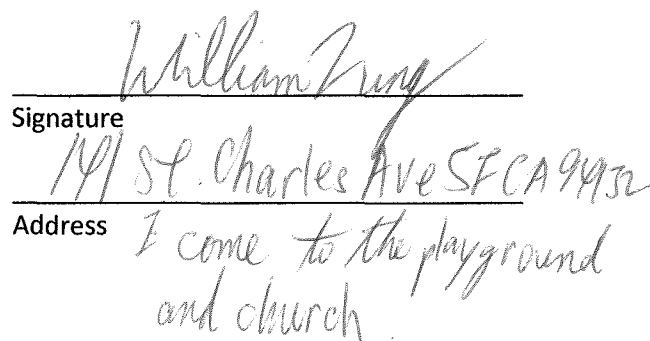 William Fung
Signature
141 St. Charles Ave SF CA 94132
Address
I come to the playground
and church